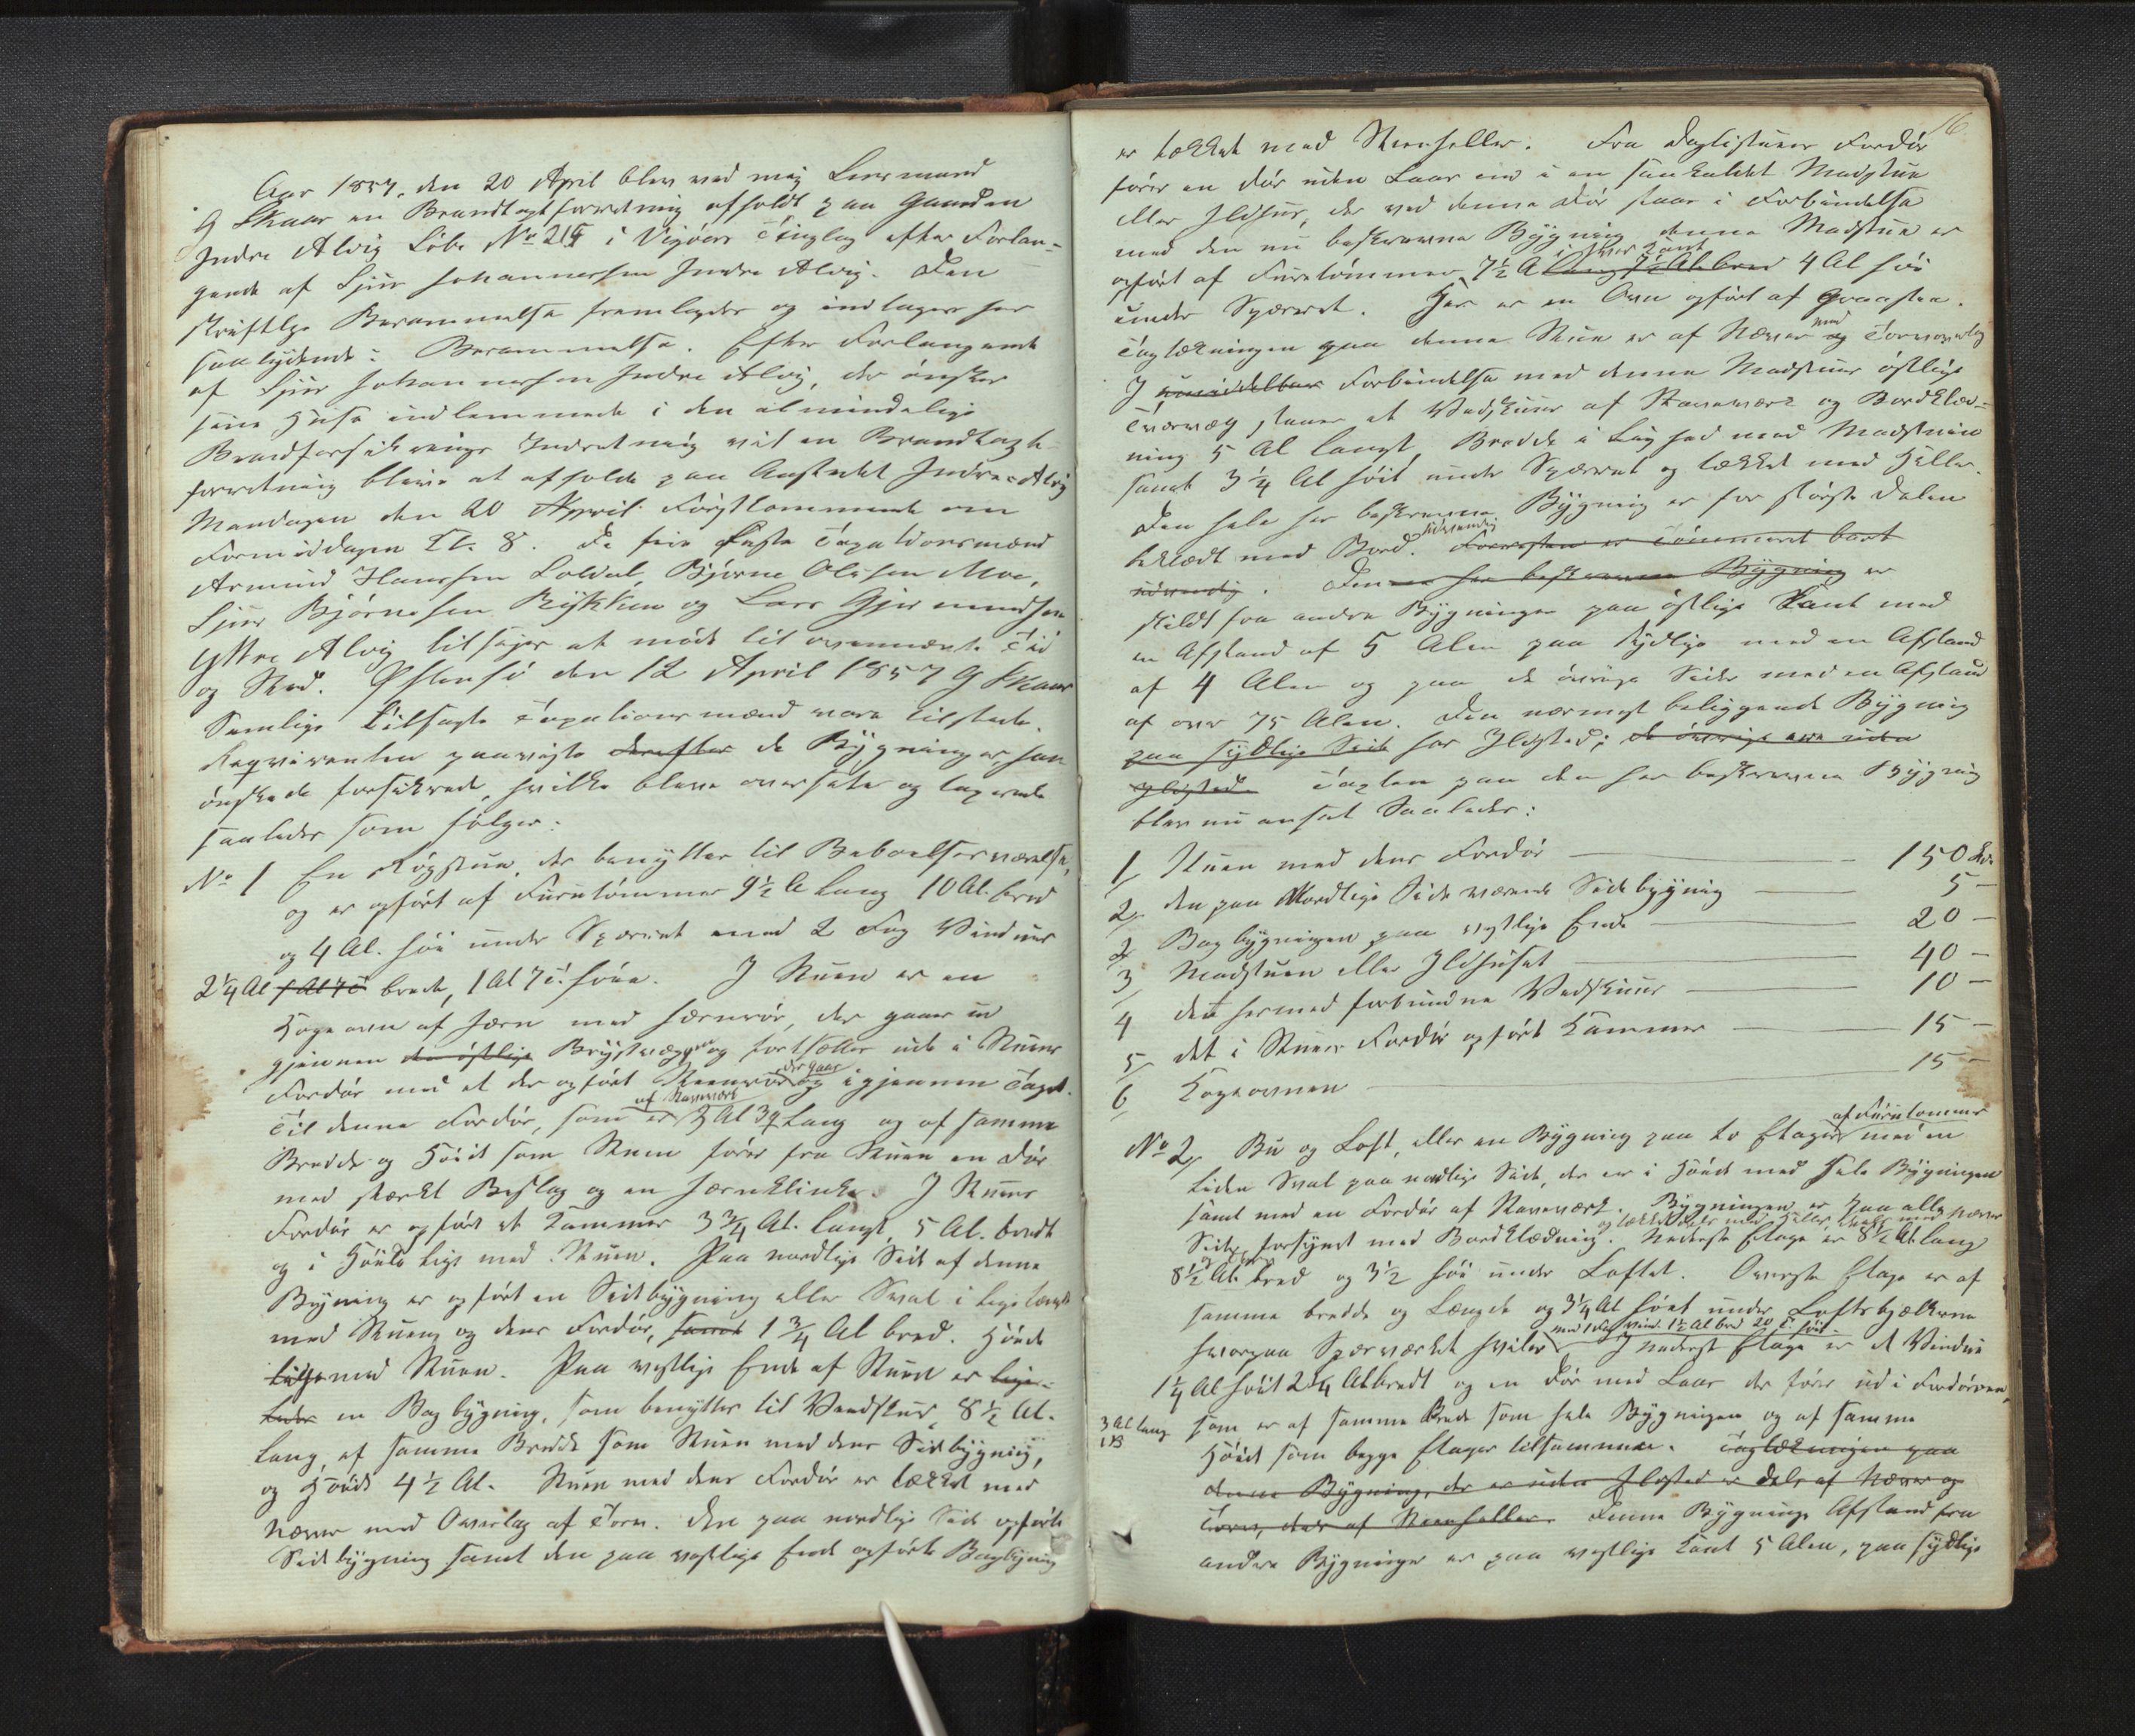 Aar 1857, den 20 April blev ved mig Lensmand
G Skaar en Brandtaxtforretning afholdt paa Gaarden
Indre Alvig Löbe No 215 i Vigöers Tinglag efter Forlan-
gende af Sjur Johannessen Indre Alvig. Den
skriftlige Berammelse fremlagdes og indtages her
saalydende: Berammelse. Efter Forlangende
af Sjur Johannessen Indre Alvig, der önsker
sine Huse indlemmede i den almindelige
Brandforsikrings Indretning vil en Brandtaxt-
forretning blive at afholde paa Aastedet Indre Alvig
Mandagen den 20 April förstkommende om
Formiddagen Kl. 8. De fire faste Taxationsmænd
Amund Hanssen Soldal, Björne Olsen Moe,
Sjur Björnesen Rykken og Lars Gjermundsen
Yttre Alvig tilsiges at möde til ovennævnte Tid
og Sted. Östensö den 12 April 1857 G Skaar
Samtlige tilsagte Taxationsmænd vare tilstede.
Reqvirenten paaviste derefter de Bygninger, han
önskede forsikrede, hvilke bleve oversete og taxerede
saaledes som fölger:
No 1 En Rögstue, der benyttes til Beboelsesværelse,
og er opfört af Furutömmer 9½ A lang 10 Al. bred
og 4 Al. höi under Sperret med 2 Fag Vinduer
2¼ Al 1 Al 7 T brede, 1 Al 7 T. höie. I Stuen er en
Kogeovn af Jærn med Jærnrör, der gaaer ud
gjennem den östlige Brystvæggen og fortsætter ude i Stuens
Fordör med et der opfört Steenrör der gaar og igjennem Taget.
Til denne Fordör, som er af Stavværk 3 Al 3 q lang og af samme
Bredde og Höide som Stuen förer fra Stuen en Dör
med stærkt Beslag og en Jærnklinke. I Stuens
Fordör er opfört et Kammer 3¾ Al. langt, 5 Al. bredt
og i Höide lige med Stuen. Paa nordlige Side af denne
Bygning er opfört en Sidebygning eller Sval i lige længde
med Stuen og dens Fordör, samt 1¾ Al bred. Höide
lige med Stuen. Paa vestlige Ende af Stuen er lige-
ledes en Bagbygning, som benyttes til Veedskur, 8½ Al.
lang, af samme Bredde som Stuen med dens Sidebygning,
og Höide 4½ Al. Stuen med dens Fordör er tækket med
Næver med Overlag af Torv. Den paa nordlige Side opförte
Sidebygning samt den paa vestlige Ende opförte Bagbygning
16.
er tækket med Steenheller. Fra Daglistuens Fordör
förer en Dör uden Laas ind i en saakaldet Madstue
eller Ildhus, der ved denne Dör staar i Forbindelse
med den nu beskrevne Bygning denne Madstue er
opfört af Furetömmer 7½ A i hver Kant lang 7½ Al. bred 4 Al höi
under Sperret. Her er en Ovn opfört af Graasten.
Tagtækningen paa denne Stue er af Næver og med Torvoverlag
I umiddelbar Forbindelse med denne Madstues östlige
Tværvæg staaer et Vedskuur af Stavværk og Bordklæd-
ning 5 Al langt, Bredde i Lighed med Madstuen
samt 3¼ Al höit under Sperret og tækket med Heller.
Den hele her beskrevne Bygning er for störste Delen
beklædt med Bord. udvendig Forresten er Tömmeret bart
udvendig. Denne her beskrevne Bygning er
skildt fra andre Bygninger paa östlige Kant med
en Afstand af 5 Alen paa sydlige med en Afstand
af 4 Alen og paa de övrige Sider med en Afstand
af over 75 Alen. Den nærmest beliggende Bygning
paa sydlige Side har Ildsted; de övrige ere uden
Ildsted. Taxten paa den her beskrevne Bygning
blev nu ansat Saaledes:
1, Stuen med dens Fordör — 150 Sdr
2, den paa Nordlige Side værende Sidebygning — 5 —
2 Bagbygningen paa vestlige Ende — 20 —
3, Madstuen eller Ildhuset — 40 —
4 det hermed forbundne Vedskuur — 10 —
5, det i Stuens Fordör opfört Kammer — 15 —
6, Kogeovnen — 15 —
No 2, Bu og Loft, eller en Bygning paa to Etager af Furutömmer med en
liden Sval paa nordlige Side, der er i Höide med hele Bygningen
samt med en Fordör af Stavværk. Bygningen er paa alle
Sider forsynet med Bordklædning. og tækket dels med Heller, dels med Næver Nederste Etage er 8½ Al lang
8½ Al. bred og 3½ höi under Loftet. Överste Etage er af
samme bredde og Længde og 3¼ Al höiet under Loftsbjælkerne
hvorpaa Sperværket hviler med 1 Fag Vind. 1½ Al bred 20 T. höit. I nederst Etage er et Vindue
1¼ Al höit 2¼ Al bredt og en Dör med Laas der förer ud i Fordören,
3 Al lang
som er af samme Brede som hele Bygningen og af samme
Höide som begge Etager tilsammen. Tagtækningen paa
denne Bygning, der er uden Ildsted er dels af Næver og
Torv, dels af Steenheller. Denne Bygnings Afstand fra
andre Bygninger er paa vestlige Kant 5 Alen, paa sydlige